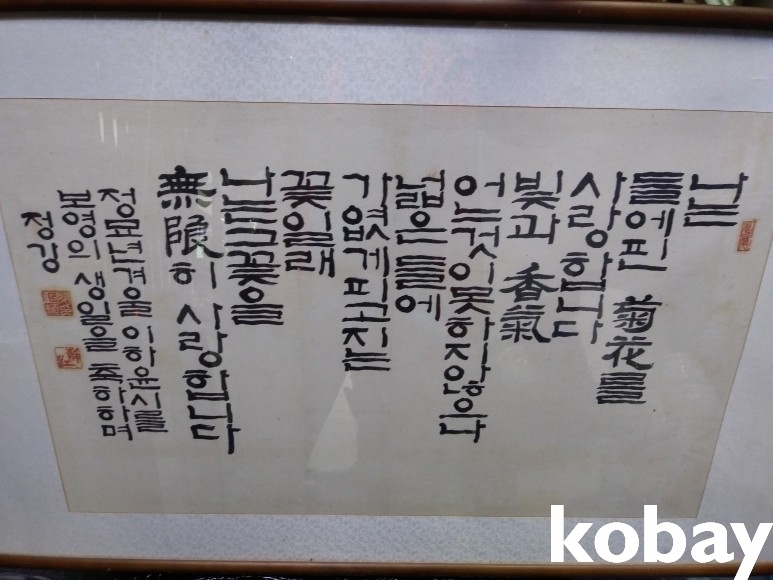 나는
들에핀 菊花를
사랑합니다
빛과 香氣
어느것이못하지않으나
넓은들에
가엾게피고지는
꽃일래
나는그꽃을
無限히 사랑합니다
가을이하윤시를
생일을
kobay